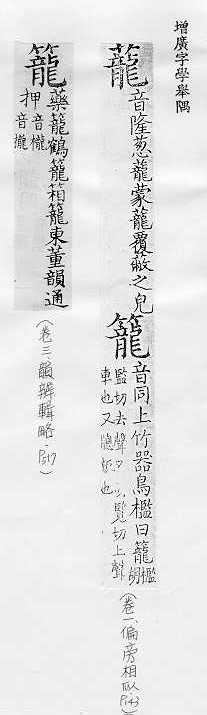 增廣字學舉隅
蘢音隆葱蘢蒙蘢覆蔽之皃籠音同上竹器鳥檻曰籠檻胡
監切去聲 覽切上聲
車也又 也
(卷一、偏旁相似
籠藥籠鶴籠箱籠東董韻通
押音櫳
音攏
(卷三、韻辨輯略